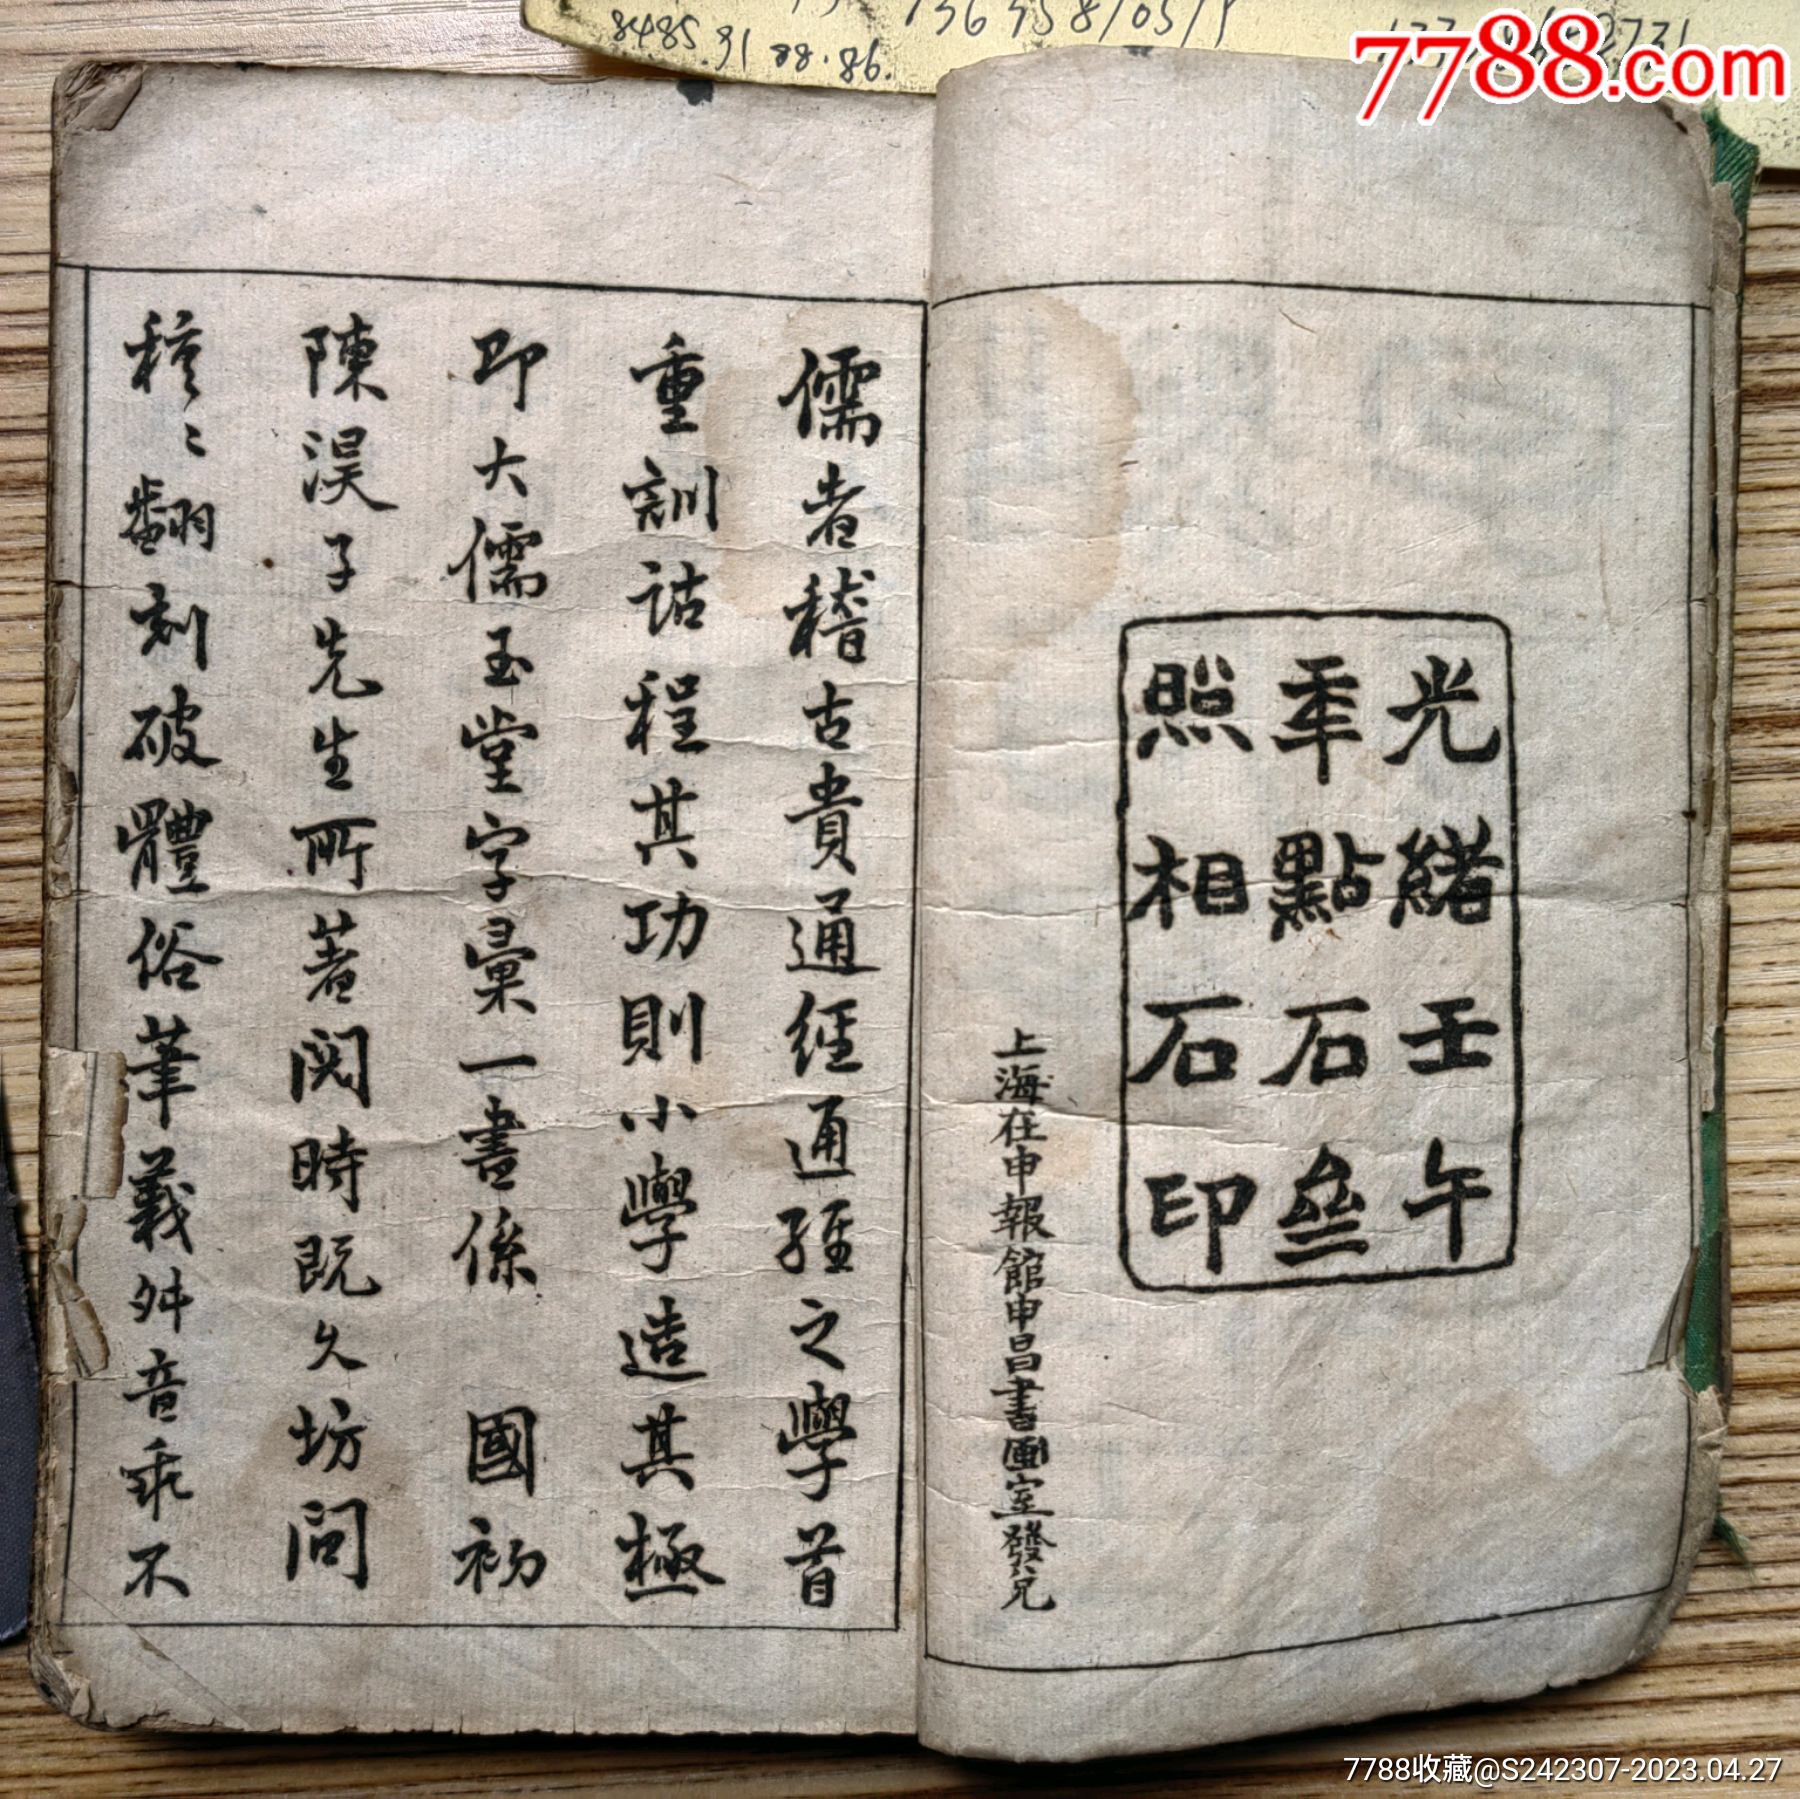 8485.91 88.86.
7788.com
光緒壬午
年點石叁
照相石印
上海在申報館申昌書畫室發兌
儒者稽古貴通經通經之學首
重訓詁程其功則小學造其極
即大儒玉堂字彙一書係 國初
陳淏子先生所著閱時既久坊間
種〻翻刻破體俗筆義舛音乖不
7788收藏@S242307-2023.04.27